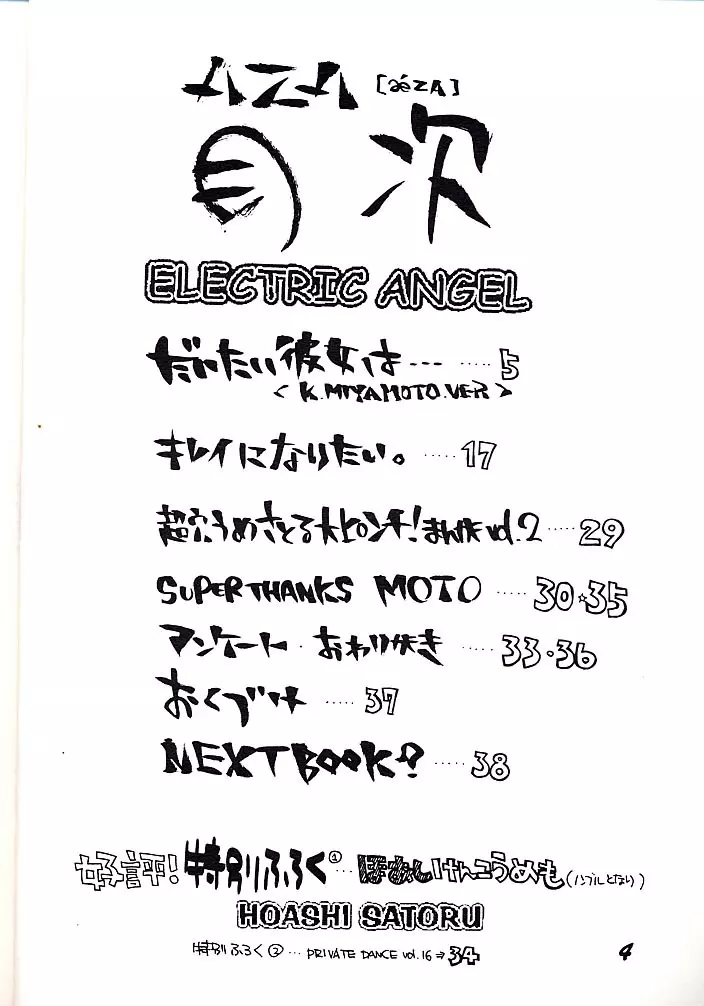 AZA [aézA]
目次
ELECTRIC ANGEL
だいたい彼女は… ‥‥‥ 5
<K.MIYAMOTO.VER>
キレイになりたい。 ‥‥‥ 17
超穴うめさとる大ピンチ!まんがvol.2 ‥‥‥ 29
SUPER THANKS MOTO ‥‥‥ 30☆35
アンケート・おわりがき ‥‥‥ 33・36
おくづけ ‥‥‥ 37
NEXT BOOK? ‥‥‥ 38
好評!特別ふろく① … ほあしけんこうめも(ノンブルとなり)
HOASHI SATORU
特別ふろく② … PRIVATE DANCE vol.16⇒34
4